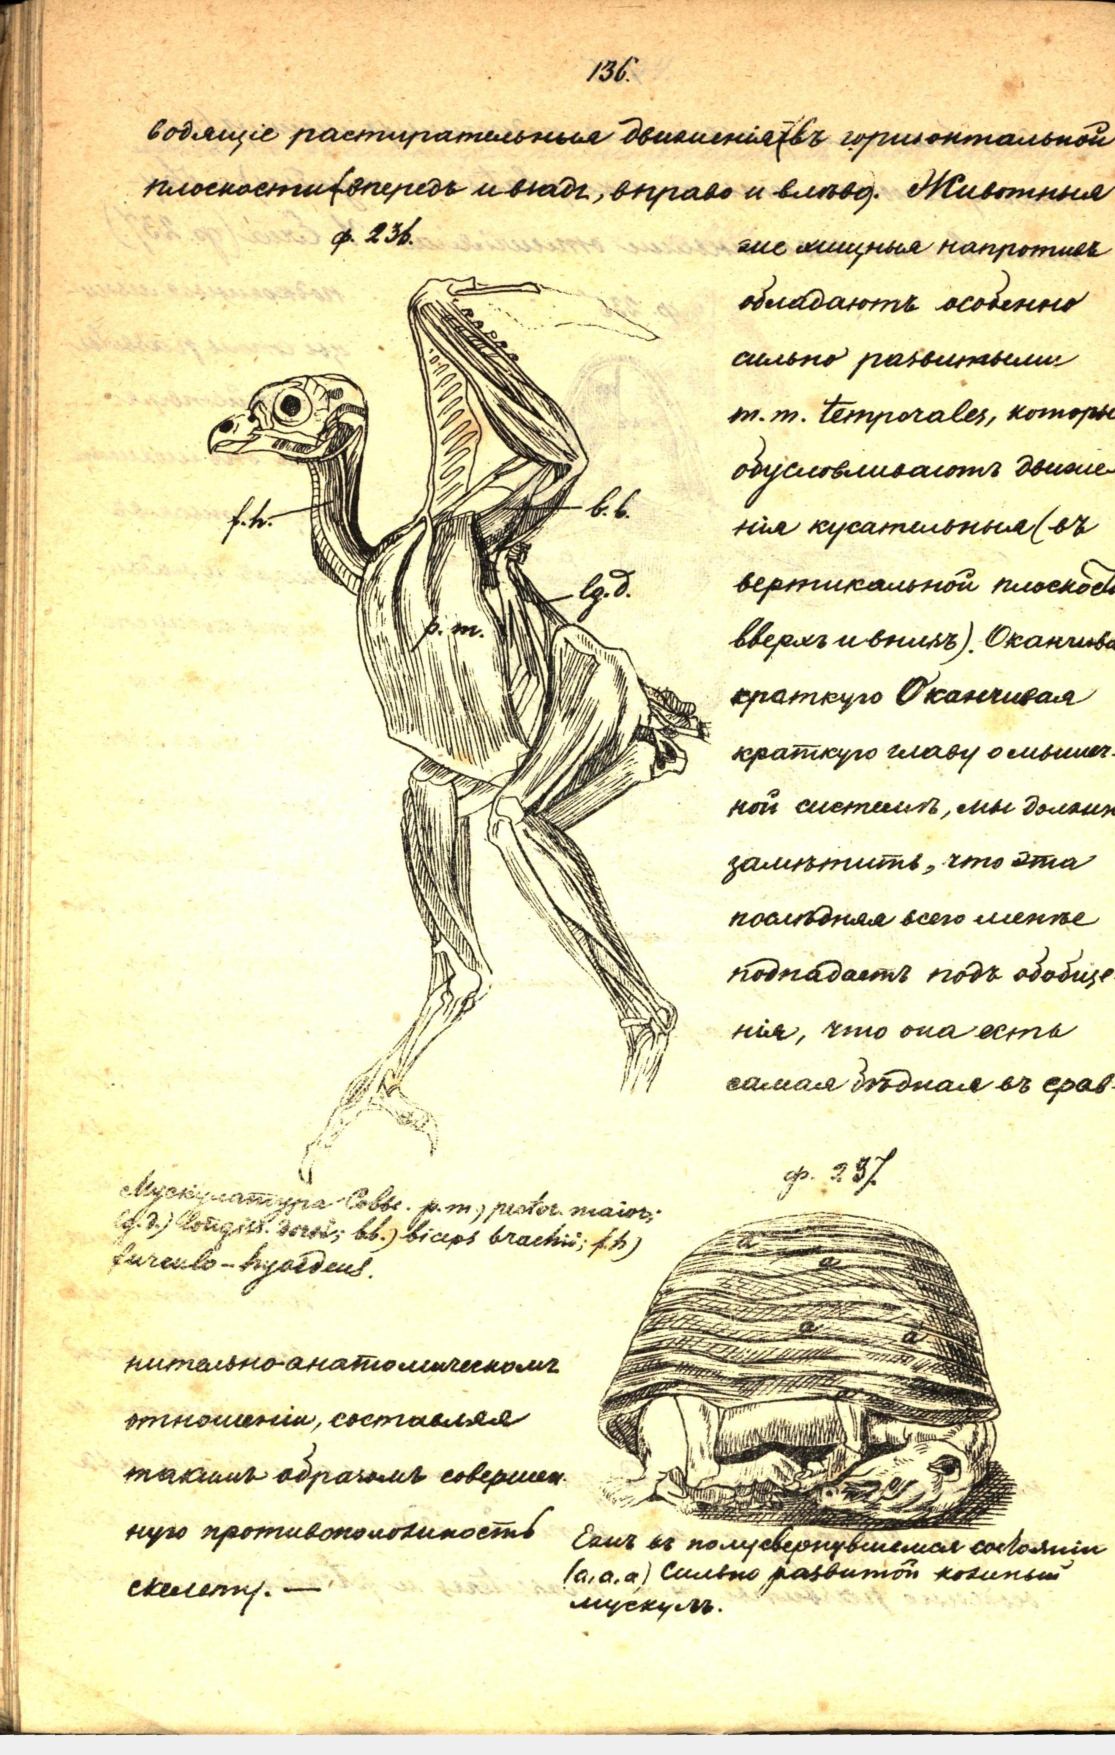 136.
водящіе растирательныя движенія (въ горизонтальной
плоскости (впередъ и взадъ, вправо и влѣво). Животныя
ф. 236.
же хищныя напротивъ
обладаютъ особенно
сильно развитыми
m. m. temporales, которы
обусловливаютъ движе-
нія кусательныя (въ
вертикальной плоскости
вверхъ и внизъ). Оканчива
краткую Оканчивая
краткую главу о мышеч-
ной системѣ, мы должн
замѣтить, что эта
послѣдняя всего менѣе
подпадаетъ подъ обобще-
нія, что она есть
самая бѣдная въ срав-
f. h.
b. b.
lg. d.
p. m.
Мускулатура p. m.) pector. maior;
lg. d.) longiss. dorsi; bb.) biceps brachii; f. h)
furculo-hyoideus.
нительно-анатомическомъ
отношеніи, составляя
такимъ образомъ совершен-
ную противоположность
скелету. —
ф. 237.
a
a
a
a
a
Ежъ въ полусвернувшемся состояніи
(a, a, a) Сильно развитой кожный
мускулъ.